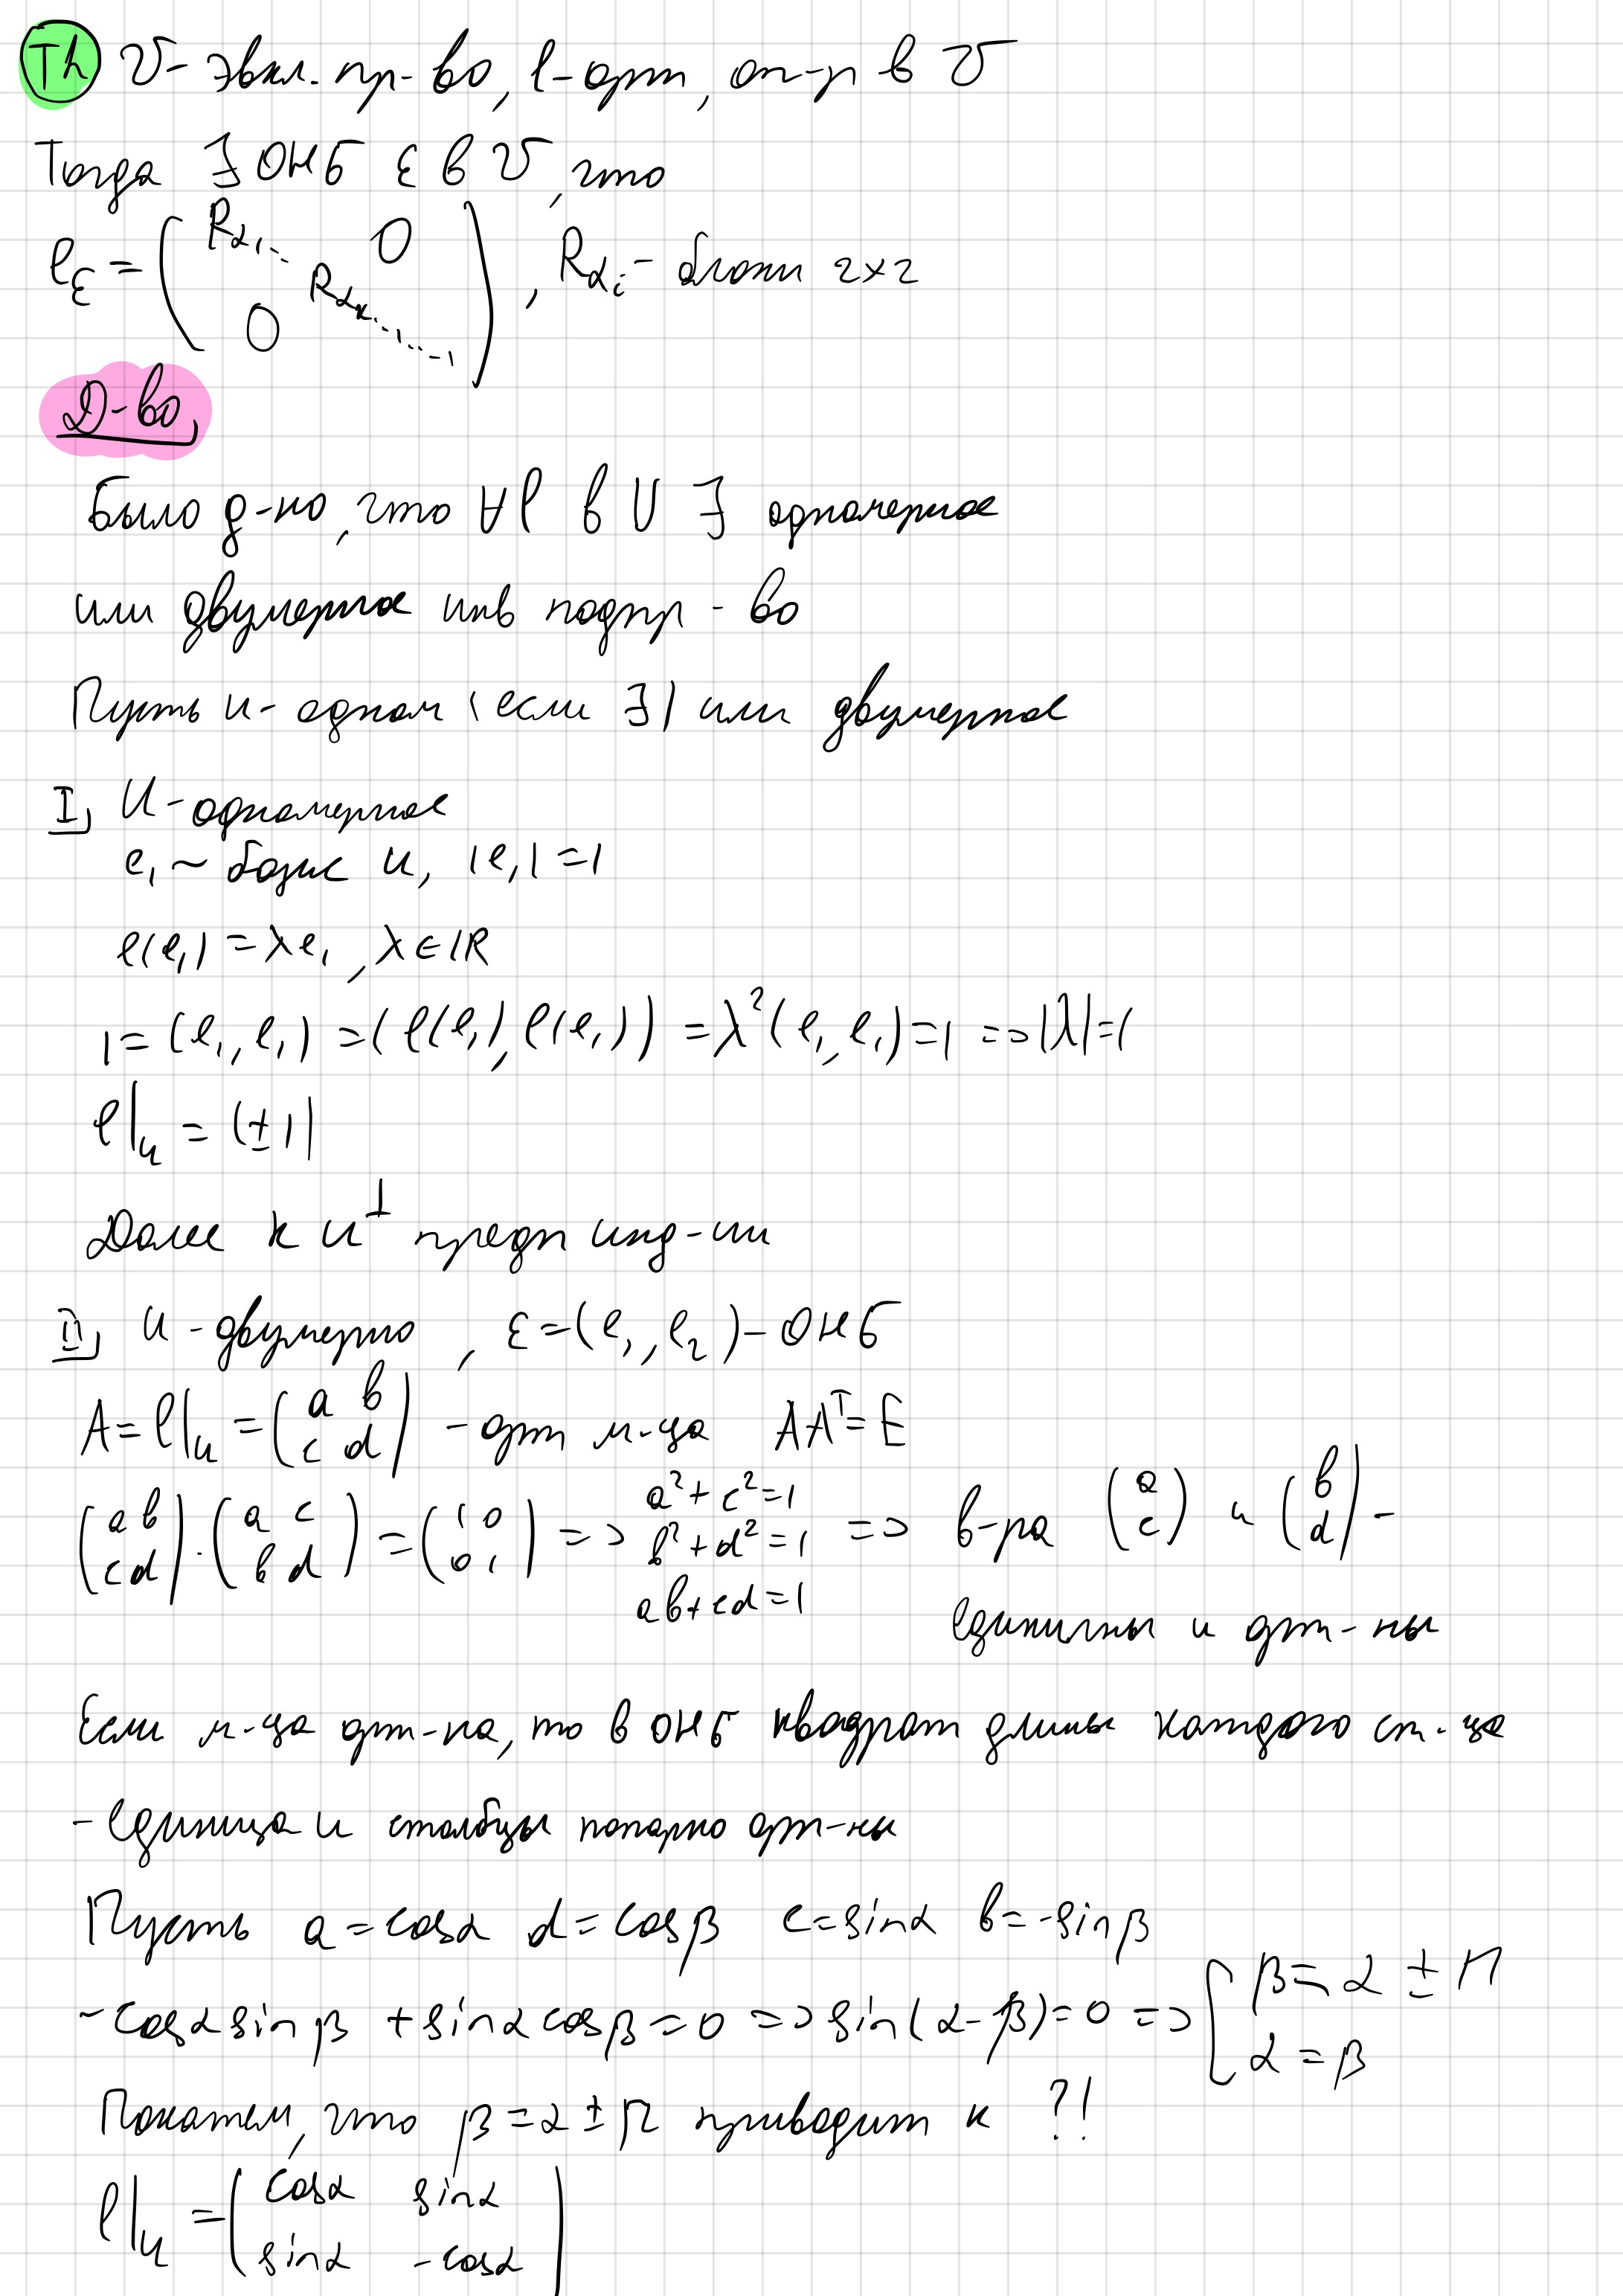 Th V - эвкл. пр-во, φ - орт, оп-р в V
Тогда ∃ ОНБ ε в V, что
φ_ε = (R_α₁ ⋱ R_αₖ ⋱ 1 ⋱ -1, 0, 0), R_αᵢ - блоки 2×2
Д-во,
Было д-но, что ∀φ в V ∃ одномерное
или двумерное инв подпр-во
Пусть U - одном (если ∃) или двумерное
I, U - одномерное
e₁ ~ базис U, |e₁| = 1
φ(e₁) = λe₁, λ ∈ ℝ
1 = (e₁, e₁) = (φ(e₁), φ(e₁)) = λ²(e₁, e₁) = 1 => |λ| = 1
φ|_U = (±1)
Далее к U^⊥ предп инд-ии
II, U - двумерно, ε = (e₁, e₂) - ОНБ
A = φ|_U = (a b; c d) - орт м-ца AAᵀ = E
(a b; c d) · (a c; b d) = (1 0; 0 1) => a² + c² = 1
b² + d² = 1
ab + cd = 1
=> в-ра (a; c) и (b; d) -
единичны и орт-ны
Если м-ца орт-на, то в ОНБ квадрат длины каждого ст-ца
- единица и столбцы попарно орт-ны
Пусть a = cosα d = cosβ c = sinα b = -sinβ
-cosα sinβ + sinα cosβ = 0 => sin(α-β) = 0 => [β = α ± π
α = β
Покажем, что β = α ± π приводит к ?!
φ|_U = (cosα sinα; sinα -cosα)